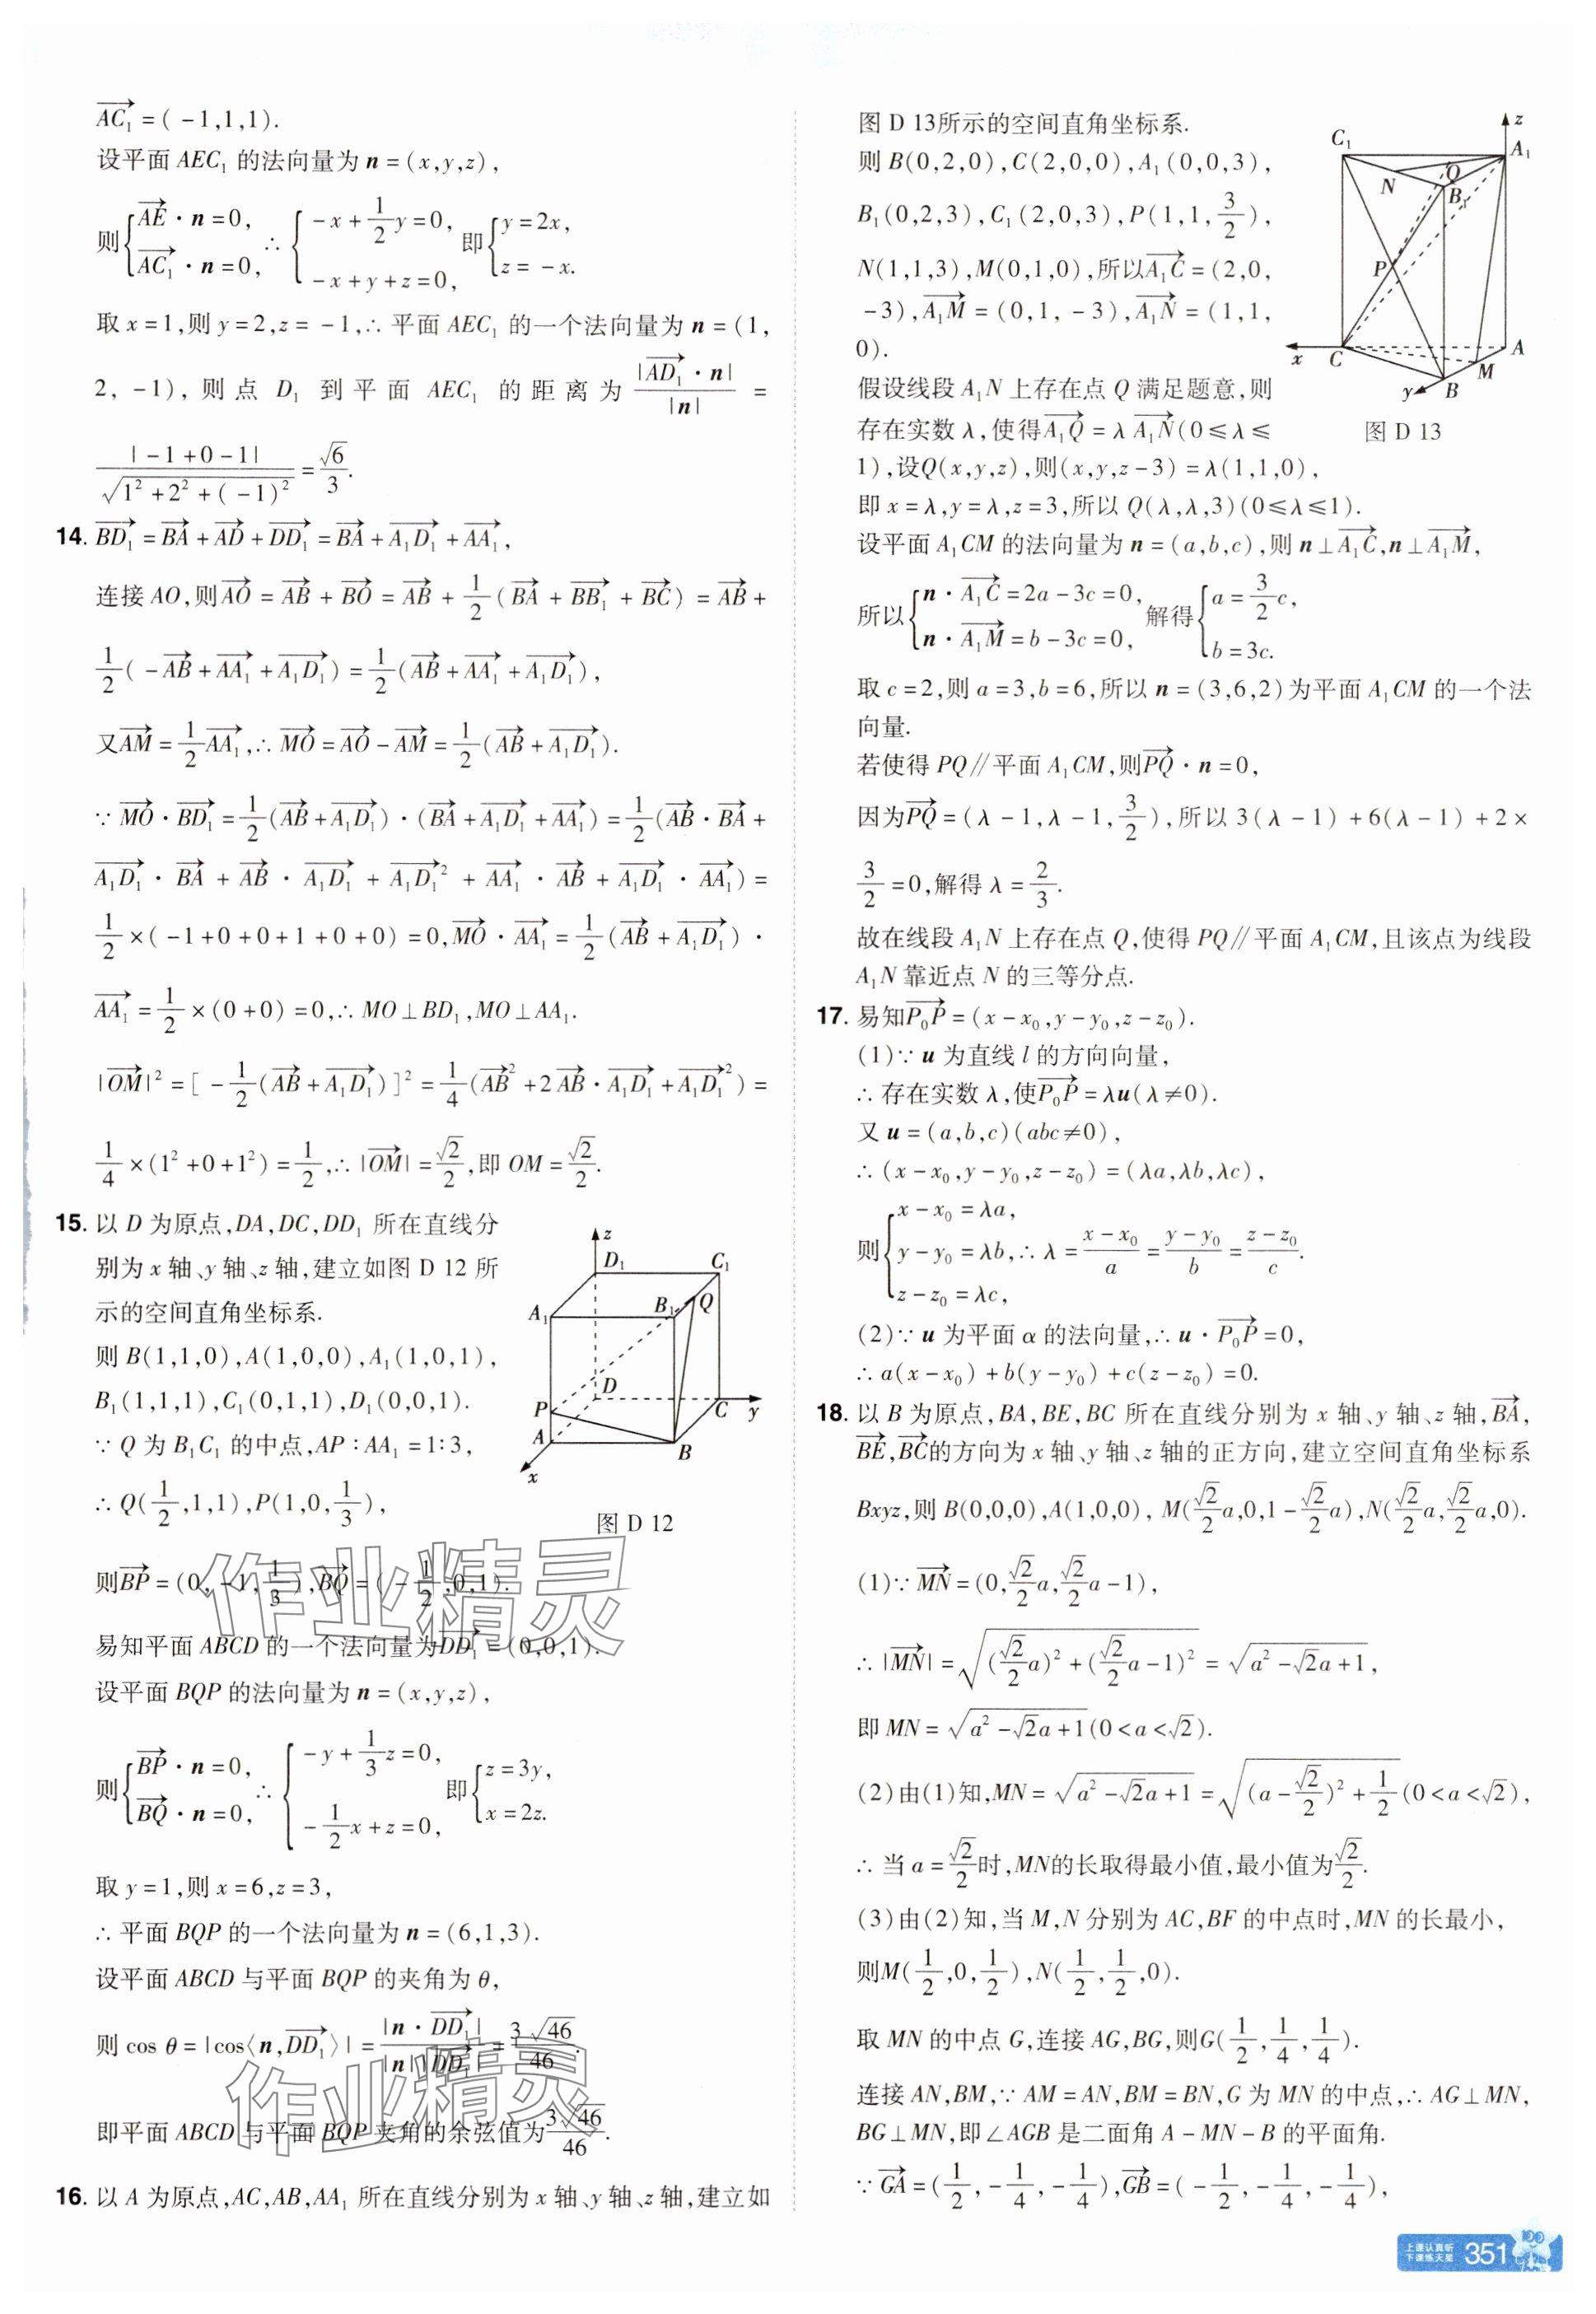 $\overrightarrow{AC_1}=(-1,1,1)$.
设平面 $AEC_1$ 的法向量为 $\boldsymbol{n}=(x,y,z)$,
则$\begin{cases}\overrightarrow{AE}\cdot\boldsymbol{n}=0,\\ \overrightarrow{AC_1}\cdot\boldsymbol{n}=0,\end{cases}$∴$\begin{cases}-x+\frac{1}{2}y=0,\\ -x+y+z=0,\end{cases}$即$\begin{cases}y=2x,\\ z=-x.\end{cases}$
取 $x=1$,则 $y=2,z=-1$,∴平面 $AEC_1$ 的一个法向量为 $\boldsymbol{n}=(1,$
$2,-1)$,则点 $D_1$ 到平面 $AEC_1$ 的距离为 $\frac{|\overrightarrow{AD_1}\cdot\boldsymbol{n}|}{|\boldsymbol{n}|}=$
$\frac{|-1+0-1|}{\sqrt{1^2+2^2+(-1)^2}}=\frac{\sqrt{6}}{3}$.
14. $\overrightarrow{BD_1}=\overrightarrow{BA}+\overrightarrow{AD}+\overrightarrow{DD_1}=\overrightarrow{BA}+\overrightarrow{A_1D_1}+\overrightarrow{AA_1}$,
连接 $AO$,则$\overrightarrow{AO}=\overrightarrow{AB}+\overrightarrow{BO}=\overrightarrow{AB}+\frac{1}{2}(\overrightarrow{BA}+\overrightarrow{BB_1}+\overrightarrow{BC})=\overrightarrow{AB}+$
$\frac{1}{2}(-\overrightarrow{AB}+\overrightarrow{AA_1}+\overrightarrow{A_1D_1})=\frac{1}{2}(\overrightarrow{AB}+\overrightarrow{AA_1}+\overrightarrow{A_1D_1})$,
又$\overrightarrow{AM}=\frac{1}{2}\overrightarrow{AA_1}$,∴$\overrightarrow{MO}=\overrightarrow{AO}-\overrightarrow{AM}=\frac{1}{2}(\overrightarrow{AB}+\overrightarrow{A_1D_1})$.
∵$\overrightarrow{MO}\cdot\overrightarrow{BD_1}=\frac{1}{2}(\overrightarrow{AB}+\overrightarrow{A_1D_1})\cdot(\overrightarrow{BA}+\overrightarrow{A_1D_1}+\overrightarrow{AA_1})=\frac{1}{2}(\overrightarrow{AB}\cdot\overrightarrow{BA}+$
$\overrightarrow{A_1D_1}\cdot\overrightarrow{BA}+\overrightarrow{AB}\cdot\overrightarrow{A_1D_1}+\overrightarrow{A_1D_1}^2+\overrightarrow{AA_1}\cdot\overrightarrow{AB}+\overrightarrow{A_1D_1}\cdot\overrightarrow{AA_1})=$
$\frac{1}{2}\times(-1+0+0+1+0+0)=0$,$\overrightarrow{MO}\cdot\overrightarrow{AA_1}=\frac{1}{2}(\overrightarrow{AB}+\overrightarrow{A_1D_1})\cdot$
$\overrightarrow{AA_1}=\frac{1}{2}\times(0+0)=0$,∴$MO\perp BD_1,MO\perp AA_1$.
$|\overrightarrow{OM}|^2=[-\frac{1}{2}(\overrightarrow{AB}+\overrightarrow{A_1D_1})]^2=\frac{1}{4}(\overrightarrow{AB}^2+2\overrightarrow{AB}\cdot\overrightarrow{A_1D_1}+\overrightarrow{A_1D_1}^2)=$
$\frac{1}{4}\times(1^2+0+1^2)=\frac{1}{2}$,∴$|\overrightarrow{OM}|=\frac{\sqrt{2}}{2}$,即 $OM=\frac{\sqrt{2}}{2}$.
15. 以 $D$ 为原点,$DA,DC,DD_1$ 所在直线分
别为 $x$ 轴、$y$ 轴、$z$ 轴,建立如图 D 12 所
示的空间直角坐标系.
则 $B(1,1,0),A(1,0,0),A_1(1,0,1)$,
$B_1(1,1,1),C_1(0,1,1),D_1(0,0,1)$.
∵ $Q$ 为 $B_1C_1$ 的中点,$AP:AA_1=1:3$,
∴$Q(\frac{1}{2},1,1),P(1,0,\frac{1}{3})$,
z
D₁
C₁
A₁
B₁
Q
D
P
C
y
A
B
x
图 D 12
则$\overrightarrow{BP}=(0,-1,\frac{1}{3}),\overrightarrow{BQ}=(-\frac{1}{2},0,1)$.
易知平面 $ABCD$ 的一个法向量为$\overrightarrow{DD_1}=(0,0,1)$.
作业精灵
设平面 $BQP$ 的法向量为 $\boldsymbol{n}=(x,y,z)$,
则$\begin{cases}\overrightarrow{BP}\cdot\boldsymbol{n}=0,\\ \overrightarrow{BQ}\cdot\boldsymbol{n}=0,\end{cases}$∴$\begin{cases}-y+\frac{1}{3}z=0,\\ -\frac{1}{2}x+z=0,\end{cases}$即$\begin{cases}z=3y,\\ x=2z.\end{cases}$
取 $y=1$,则 $x=6,z=3$,
∴平面 $BQP$ 的一个法向量为 $\boldsymbol{n}=(6,1,3)$.
设平面 $ABCD$ 与平面 $BQP$ 的夹角为 $\theta$,
则 $\cos\theta=|\cos\langle\boldsymbol{n},\overrightarrow{DD_1}\rangle|=\frac{|\boldsymbol{n}\cdot\overrightarrow{DD_1}|}{|\boldsymbol{n}||\overrightarrow{DD_1}|}=\frac{3\sqrt{46}}{46}$.
作业精灵
即平面 $ABCD$ 与平面 $BQP$ 夹角的余弦值为$\frac{3\sqrt{46}}{46}$.
16. 以 $A$ 为原点,$AC,AB,AA_1$ 所在直线分别为 $x$ 轴、$y$ 轴、$z$ 轴,建立如
图 D 13所示的空间直角坐标系.
则 $B(0,2,0),C(2,0,0),A_1(0,0,3)$,
$B_1(0,2,3),C_1(2,0,3),P(1,1,\frac{3}{2})$,
$N(1,1,3),M(0,1,0)$,所以$\overrightarrow{A_1C}=(2,0,$
$-3),\overrightarrow{A_1M}=(0,1,-3),\overrightarrow{A_1N}=(1,1,$
$0)$.
z
C₁
A₁
N
Q
B₁
P
x
C
A
M
y
B
图 D 13
假设线段 $A_1N$ 上存在点 $Q$ 满足题意,则
存在实数 $\lambda$,使得$\overrightarrow{A_1Q}=\lambda\overrightarrow{A_1N}(0\leqslant\lambda\leqslant$
$1)$,设$Q(x,y,z)$,则$(x,y,z-3)=\lambda(1,1,0)$,
即 $x=\lambda,y=\lambda,z=3$,所以 $Q(\lambda,\lambda,3)(0\leqslant\lambda\leqslant1)$.
设平面 $A_1CM$ 的法向量为 $\boldsymbol{n}=(a,b,c)$,则 $\boldsymbol{n}\perp\overrightarrow{A_1C},\boldsymbol{n}\perp\overrightarrow{A_1M}$,
所以$\begin{cases}\boldsymbol{n}\cdot\overrightarrow{A_1C}=2a-3c=0,\\ \boldsymbol{n}\cdot\overrightarrow{A_1M}=b-3c=0,\end{cases}$解得$\begin{cases}a=\frac{3}{2}c,\\ b=3c.\end{cases}$
取 $c=2$,则 $a=3,b=6$,所以 $\boldsymbol{n}=(3,6,2)$为平面 $A_1CM$ 的一个法
向量.
若使得 $PQ$∥平面 $A_1CM$,则$\overrightarrow{PQ}\cdot\boldsymbol{n}=0$,
因为$\overrightarrow{PQ}=(\lambda-1,\lambda-1,\frac{3}{2})$,所以 $3(\lambda-1)+6(\lambda-1)+2\times$
$\frac{3}{2}=0$,解得 $\lambda=\frac{2}{3}$.
故在线段 $A_1N$ 上存在点 $Q$,使得 $PQ$∥平面 $A_1CM$,且该点为线段
$A_1N$ 靠近点 $N$ 的三等分点.
17. 易知$\overrightarrow{P_0P}=(x-x_0,y-y_0,z-z_0)$.
(1)∵ $\boldsymbol{u}$ 为直线 $l$ 的方向向量,
∴存在实数 $\lambda$,使$\overrightarrow{P_0P}=\lambda\boldsymbol{u}(\lambda\neq0)$.
又 $\boldsymbol{u}=(a,b,c)(abc\neq0)$,
∴$(x-x_0,y-y_0,z-z_0)=(\lambda a,\lambda b,\lambda c)$,
则$\begin{cases}x-x_0=\lambda a,\\ y-y_0=\lambda b,\\ z-z_0=\lambda c,\end{cases}$∴$\lambda=\frac{x-x_0}{a}=\frac{y-y_0}{b}=\frac{z-z_0}{c}$.
(2)∵ $\boldsymbol{u}$ 为平面 $\alpha$ 的法向量,∴$\boldsymbol{u}\cdot\overrightarrow{P_0P}=0$,
∴$a(x-x_0)+b(y-y_0)+c(z-z_0)=0$.
18. 以 $B$ 为原点,$BA,BE,BC$ 所在直线分别为 $x$ 轴、$y$ 轴、$z$ 轴,$\overrightarrow{BA}$,
$\overrightarrow{BE},\overrightarrow{BC}$的方向为 $x$ 轴、$y$ 轴、$z$ 轴的正方向,建立空间直角坐标系
$Bxyz$,则 $B(0,0,0),A(1,0,0),M(\frac{\sqrt{2}}{2}a,0,1-\frac{\sqrt{2}}{2}a),N(\frac{\sqrt{2}}{2}a,\frac{\sqrt{2}}{2}a,0)$.
(1)∵$\overrightarrow{MN}=(0,\frac{\sqrt{2}}{2}a,\frac{\sqrt{2}}{2}a-1)$,
∴$|\overrightarrow{MN}|=\sqrt{(\frac{\sqrt{2}}{2}a)^2+(\frac{\sqrt{2}}{2}a-1)^2}=\sqrt{a^2-\sqrt{2}a+1}$,
即 $MN=\sqrt{a^2-\sqrt{2}a+1}(0<a<\sqrt{2})$.
(2)由(1)知,$MN=\sqrt{a^2-\sqrt{2}a+1}=\sqrt{(a-\frac{\sqrt{2}}{2})^2+\frac{1}{2}}(0<a<\sqrt{2})$,
∴当 $a=\frac{\sqrt{2}}{2}$时,$MN$的长取得最小值,最小值为$\frac{\sqrt{2}}{2}$.
(3)由(2)知,当 $M,N$ 分别为 $AC,BF$ 的中点时,$MN$ 的长最小,
则$M(\frac{1}{2},0,\frac{1}{2}),N(\frac{1}{2},\frac{1}{2},0)$.
取 $MN$ 的中点 $G$,连接 $AG,BG$,则$G(\frac{1}{2},\frac{1}{4},\frac{1}{4})$.
连接 $AN,BM$,∵$AM=AN,BM=BN,G$ 为 $MN$ 的中点,∴$AG\perp MN$,
$BG\perp MN$,即$\angle AGB$ 是二面角 $A-MN-B$ 的平面角.
∵$\overrightarrow{GA}=(\frac{1}{2},-\frac{1}{4},-\frac{1}{4}),\overrightarrow{GB}=(-\frac{1}{2},-\frac{1}{4},-\frac{1}{4})$,
上课认真听
下课练天星
351